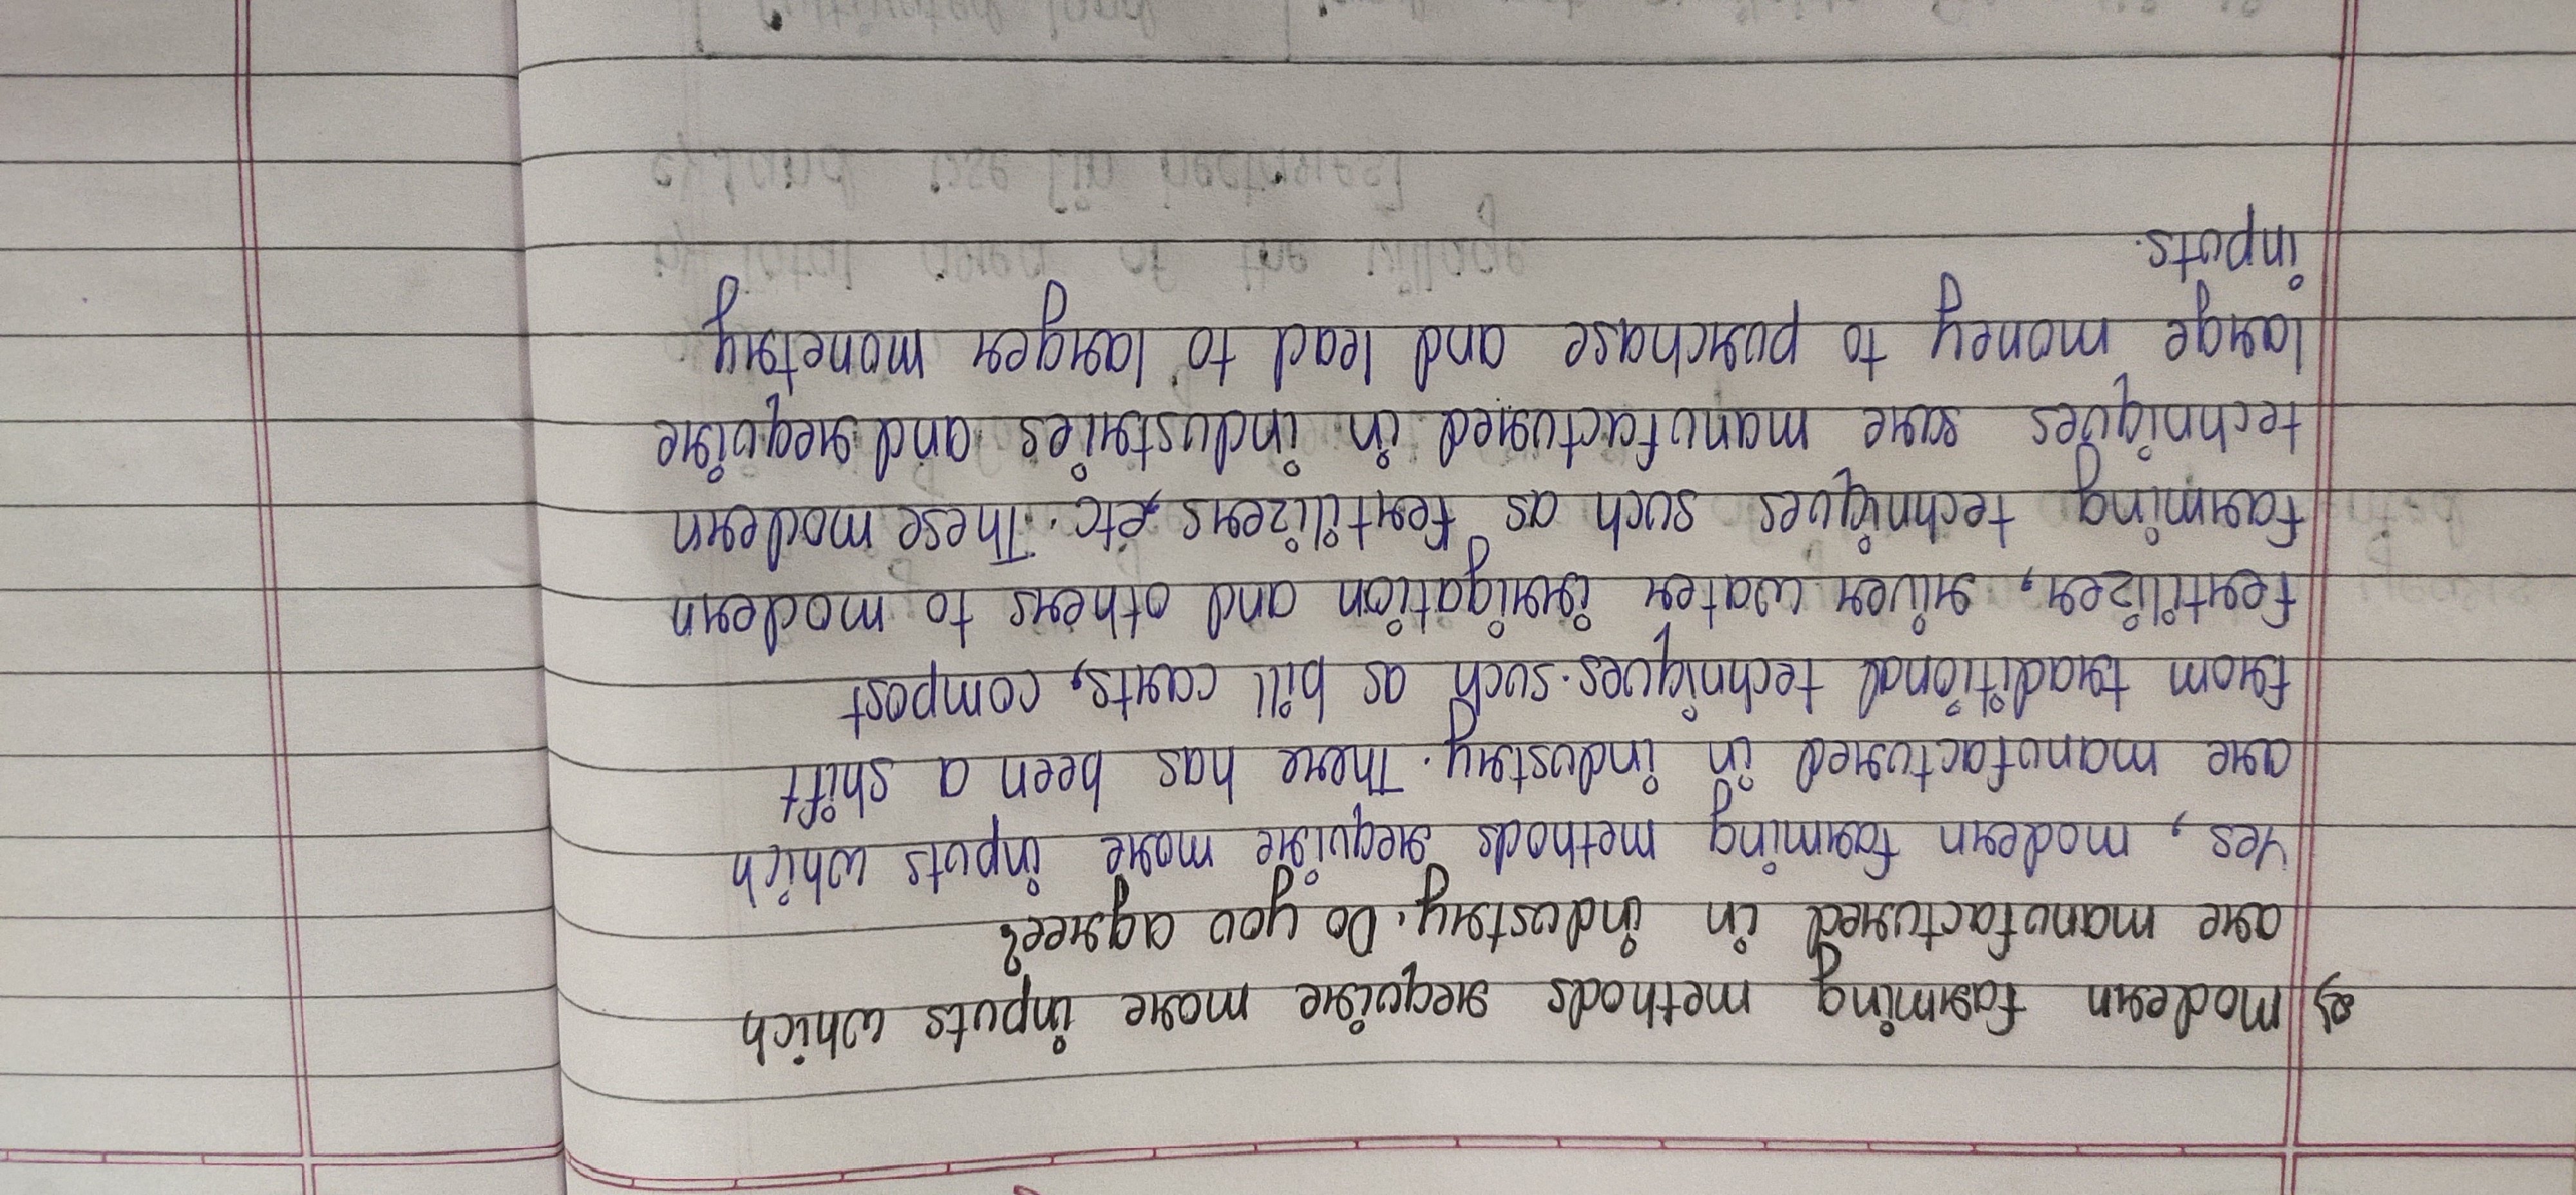 Modern farming methods require more inputs which
are manufactured in industry. Do you agree?
Yes, modern farming methods require more inputs which
are manufactured in industry. There has been a shift
from traditional techniques. such as bill carts, compost
fertilizer, river water irrigation and others to modern
farming techniques such as fertilizers etc. These modern
techniques are manufactured in industries and require
large money to purchase and lead to larger monetry
inputs.